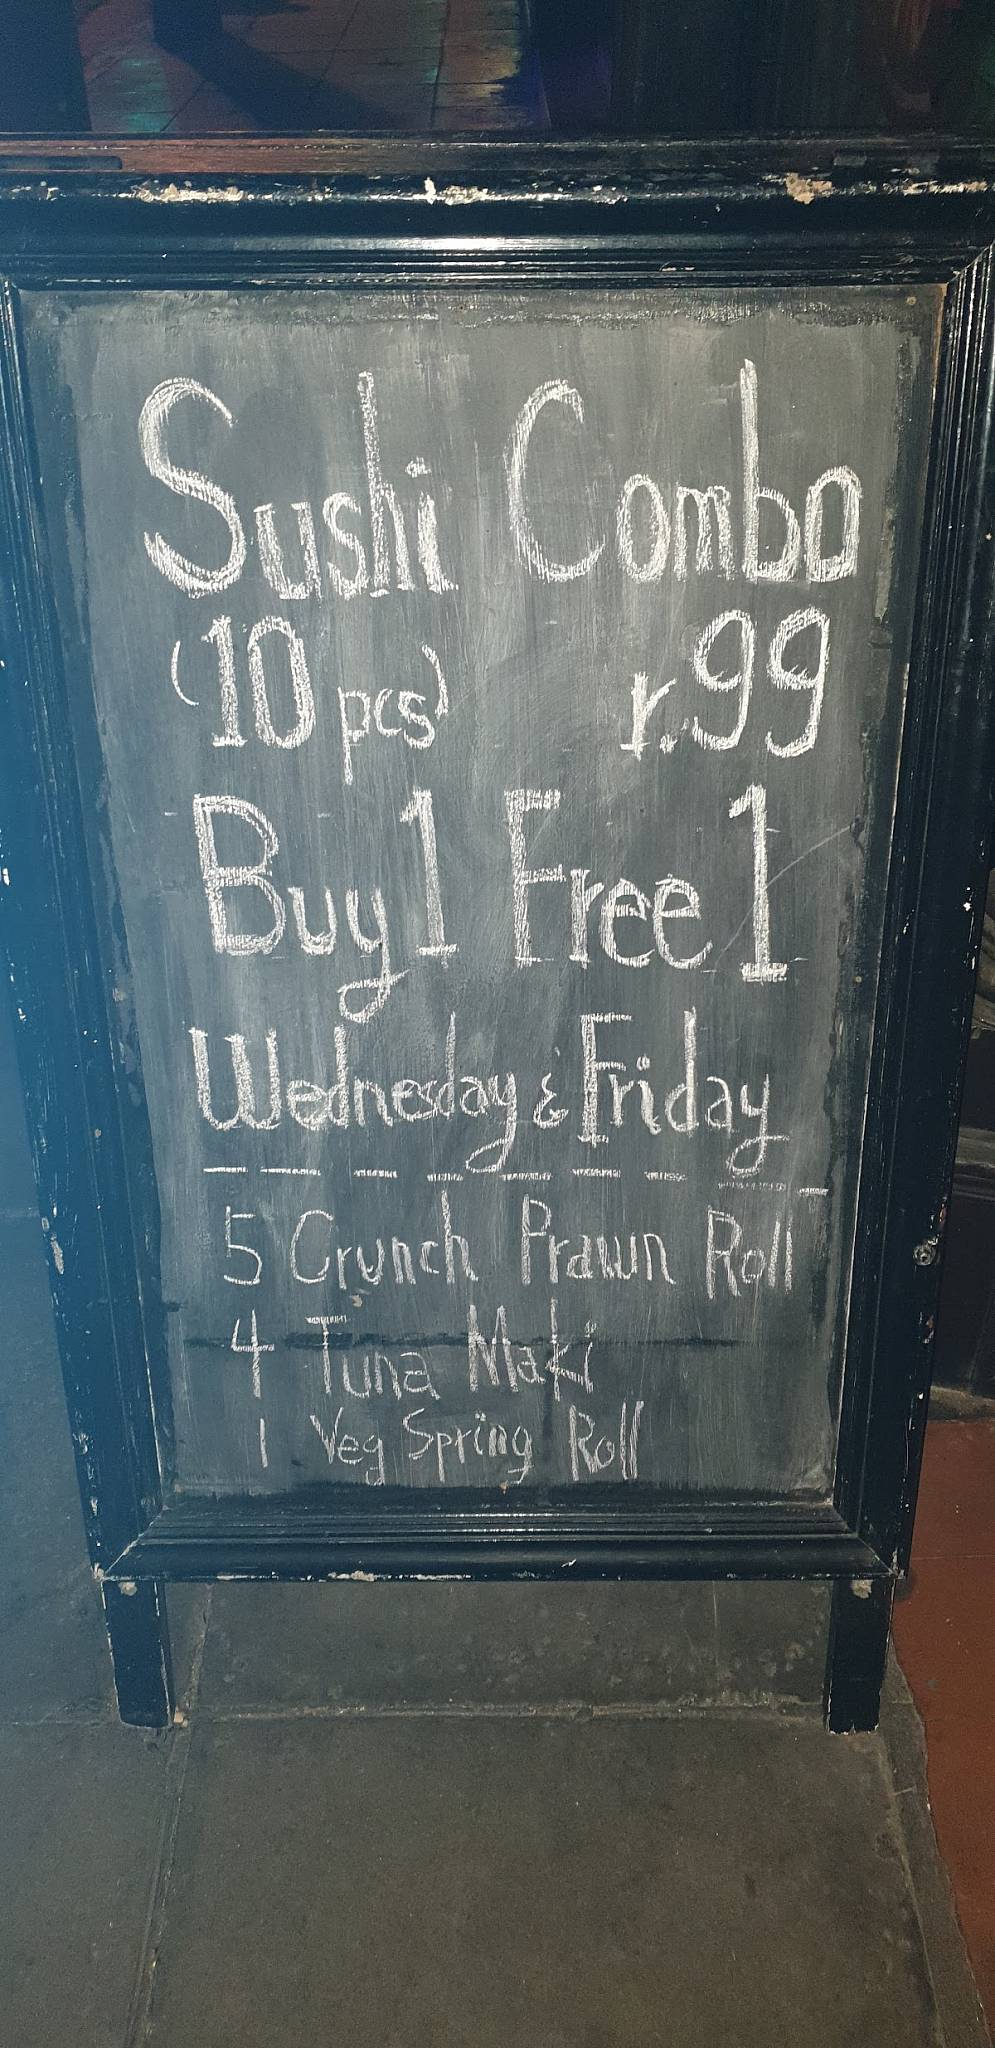 Sushi Combo
(10 pcs) r.99
Buy 1 Free 1
Wednesday & Friday
5 Crunch Prawn Roll
4 Tuna Maki
1 Veg Spring Roll